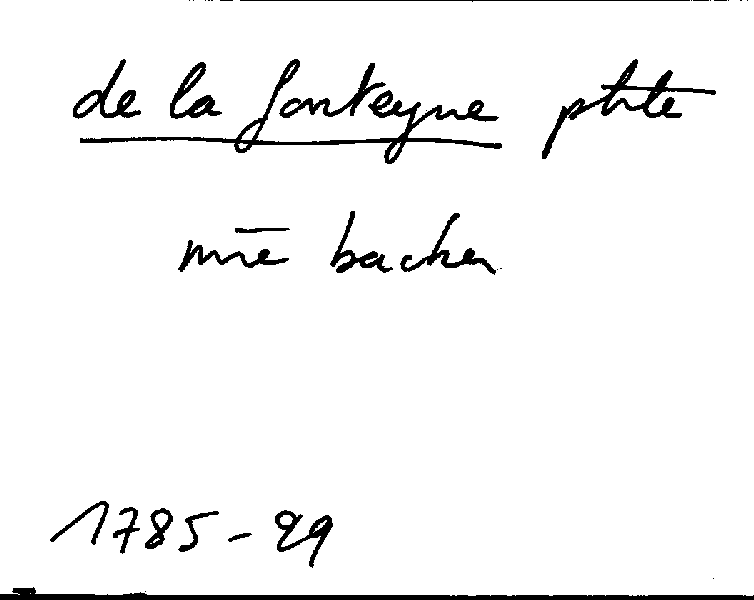 de la fonteyne phte
mr̄e backer
1785-29